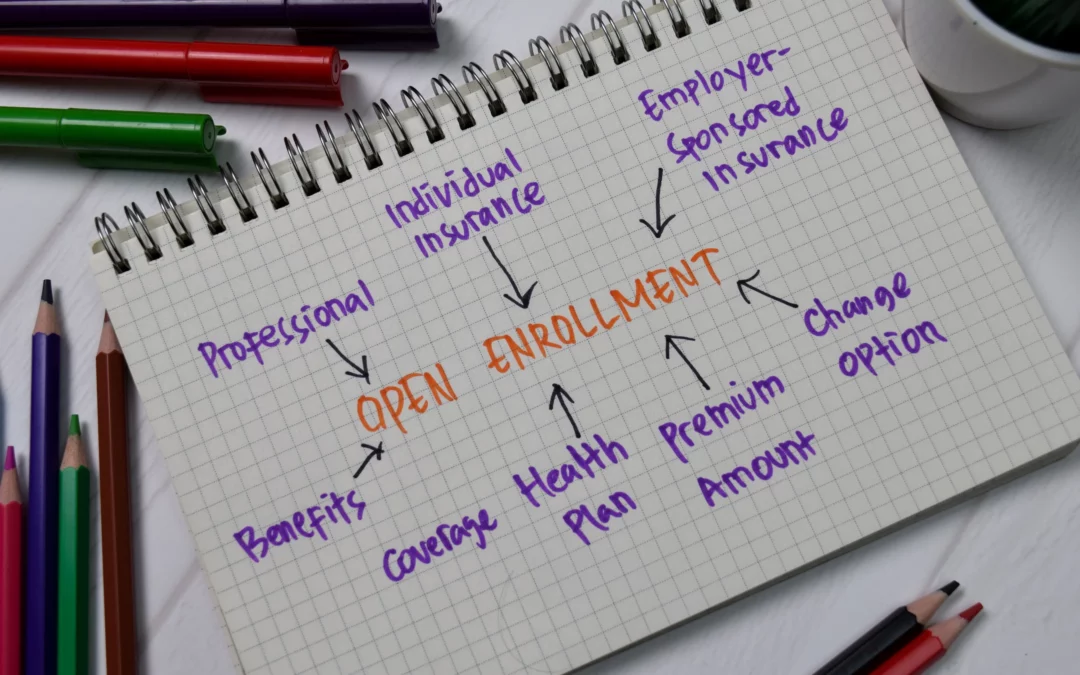 Employer-
Sponsored
Insurance
Individual
Insurance
Professional
OPEN ENROLLMENT
Change
option
Benefits
Coverage
Health
Plan
Premium
Amount